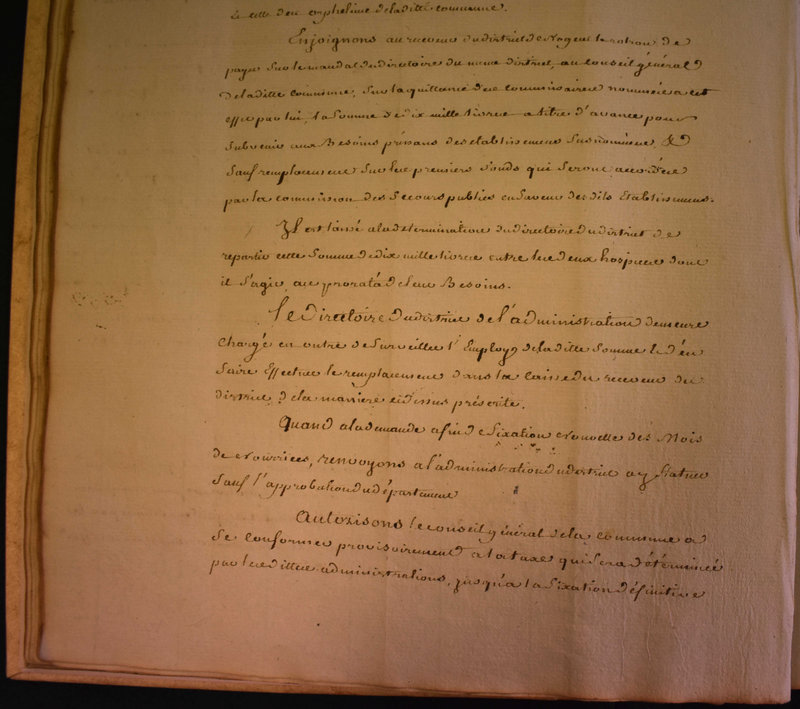 à celle des orphelins de la ditte commune.
Enjoignons au receveur du district de Nogent le rotrou de
payer sur le mandat du directoire du meme district, au Conseil général
de la ditte Commune, sur la quittance des commissaires nommées a cet
effet par lui, la Somme de dix mille livres a titre d'avance pour
subvenir aux Besoins préssans des etablissemens susnommés, &
sauf remplacement sur les premiers fonds qui seront accordés
par la commission des secours publics en faveur des dits Etablissemens.
Il est laissé a la determination du directoire du district de
repartir cette somme de dix mille livres entre les deux hospices dont
il s'agit, au prorata de leurs Besoins.
Le Directoire du district de l'administration demeure
Chargé en outre de surveiller l'Employ de la ditte Somme & d'en
faire Effectuer le remplacement dans la caisse du receveur du
district, de la manière cidessus préscrite.
Quand a la demande afin de fixation nouvelle des Mois
de nourrices, renvoyons a l'administration du district a y statuer
sauf l'approbation du département
Autorisons le conseil général de la commune a
se conformer provisoirement a la taxe qui sera déterminée
par les dittes administrations, jusqu'a la fixation définitive